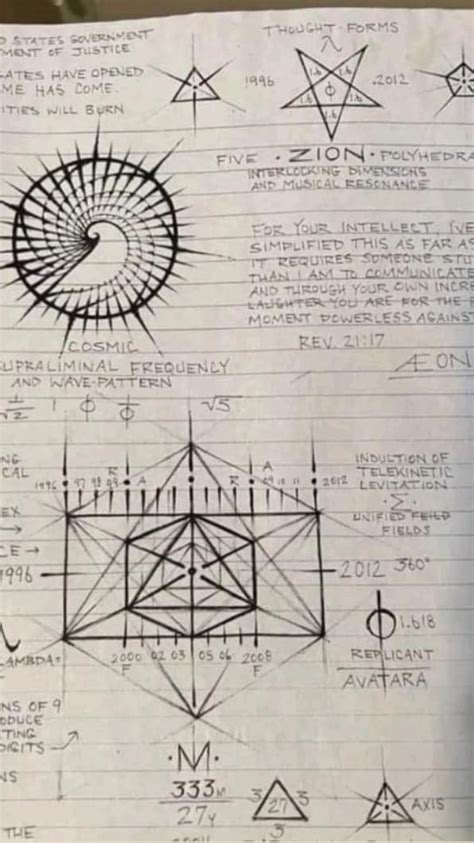 D STATES GOVERNMENT
MENT OF JUSTICE
LATES HAVE OPENED
ME HAS COME.
ITIES WILL BURN
THOUGHT·FORMS
1996
1.6
1.6
1.6
1.6
1.6
Φ
.2012
FIVE · ZION · POLYHEDRA
INTERLOCKING DIMENSIONS
AND MUSICAL RESONANCE
FOR YOUR INTELLECT, I'VE
SIMPLIFIED THIS AS FAR AS
IT REQUIRES SOMEONE STU
THAN I AM TO COMMUNICATE
AND THROUGH YOUR OWN INCRE
LAUGHTER YOU ARE FOR THE
MOMENT POWERLESS AGAINST
REV. 21:17
ÆON
COSMIC
SUPRALIMINAL FREQUENCY
AND WAVE-PATTERN
1/√2 1 Φ 1/Φ √5
NG
CAL
1996 97 98 99 R A
A R 09 10 11 2012
INDUCTION OF
TELEKINETIC
LEVITATION
·Σ·
UNIFIED FEILD
FIELDS
EX
→
CE →
1996
2012 360°
Φ 1.618
REPLICANT
AVATARA
LAMBDA=
2000 02 03 05 06 2008
F F
NS OF 9
ODUCE
TING
DIGITS
NS
·M·
333M
27Y
3 27 3
3
AXIS
THE